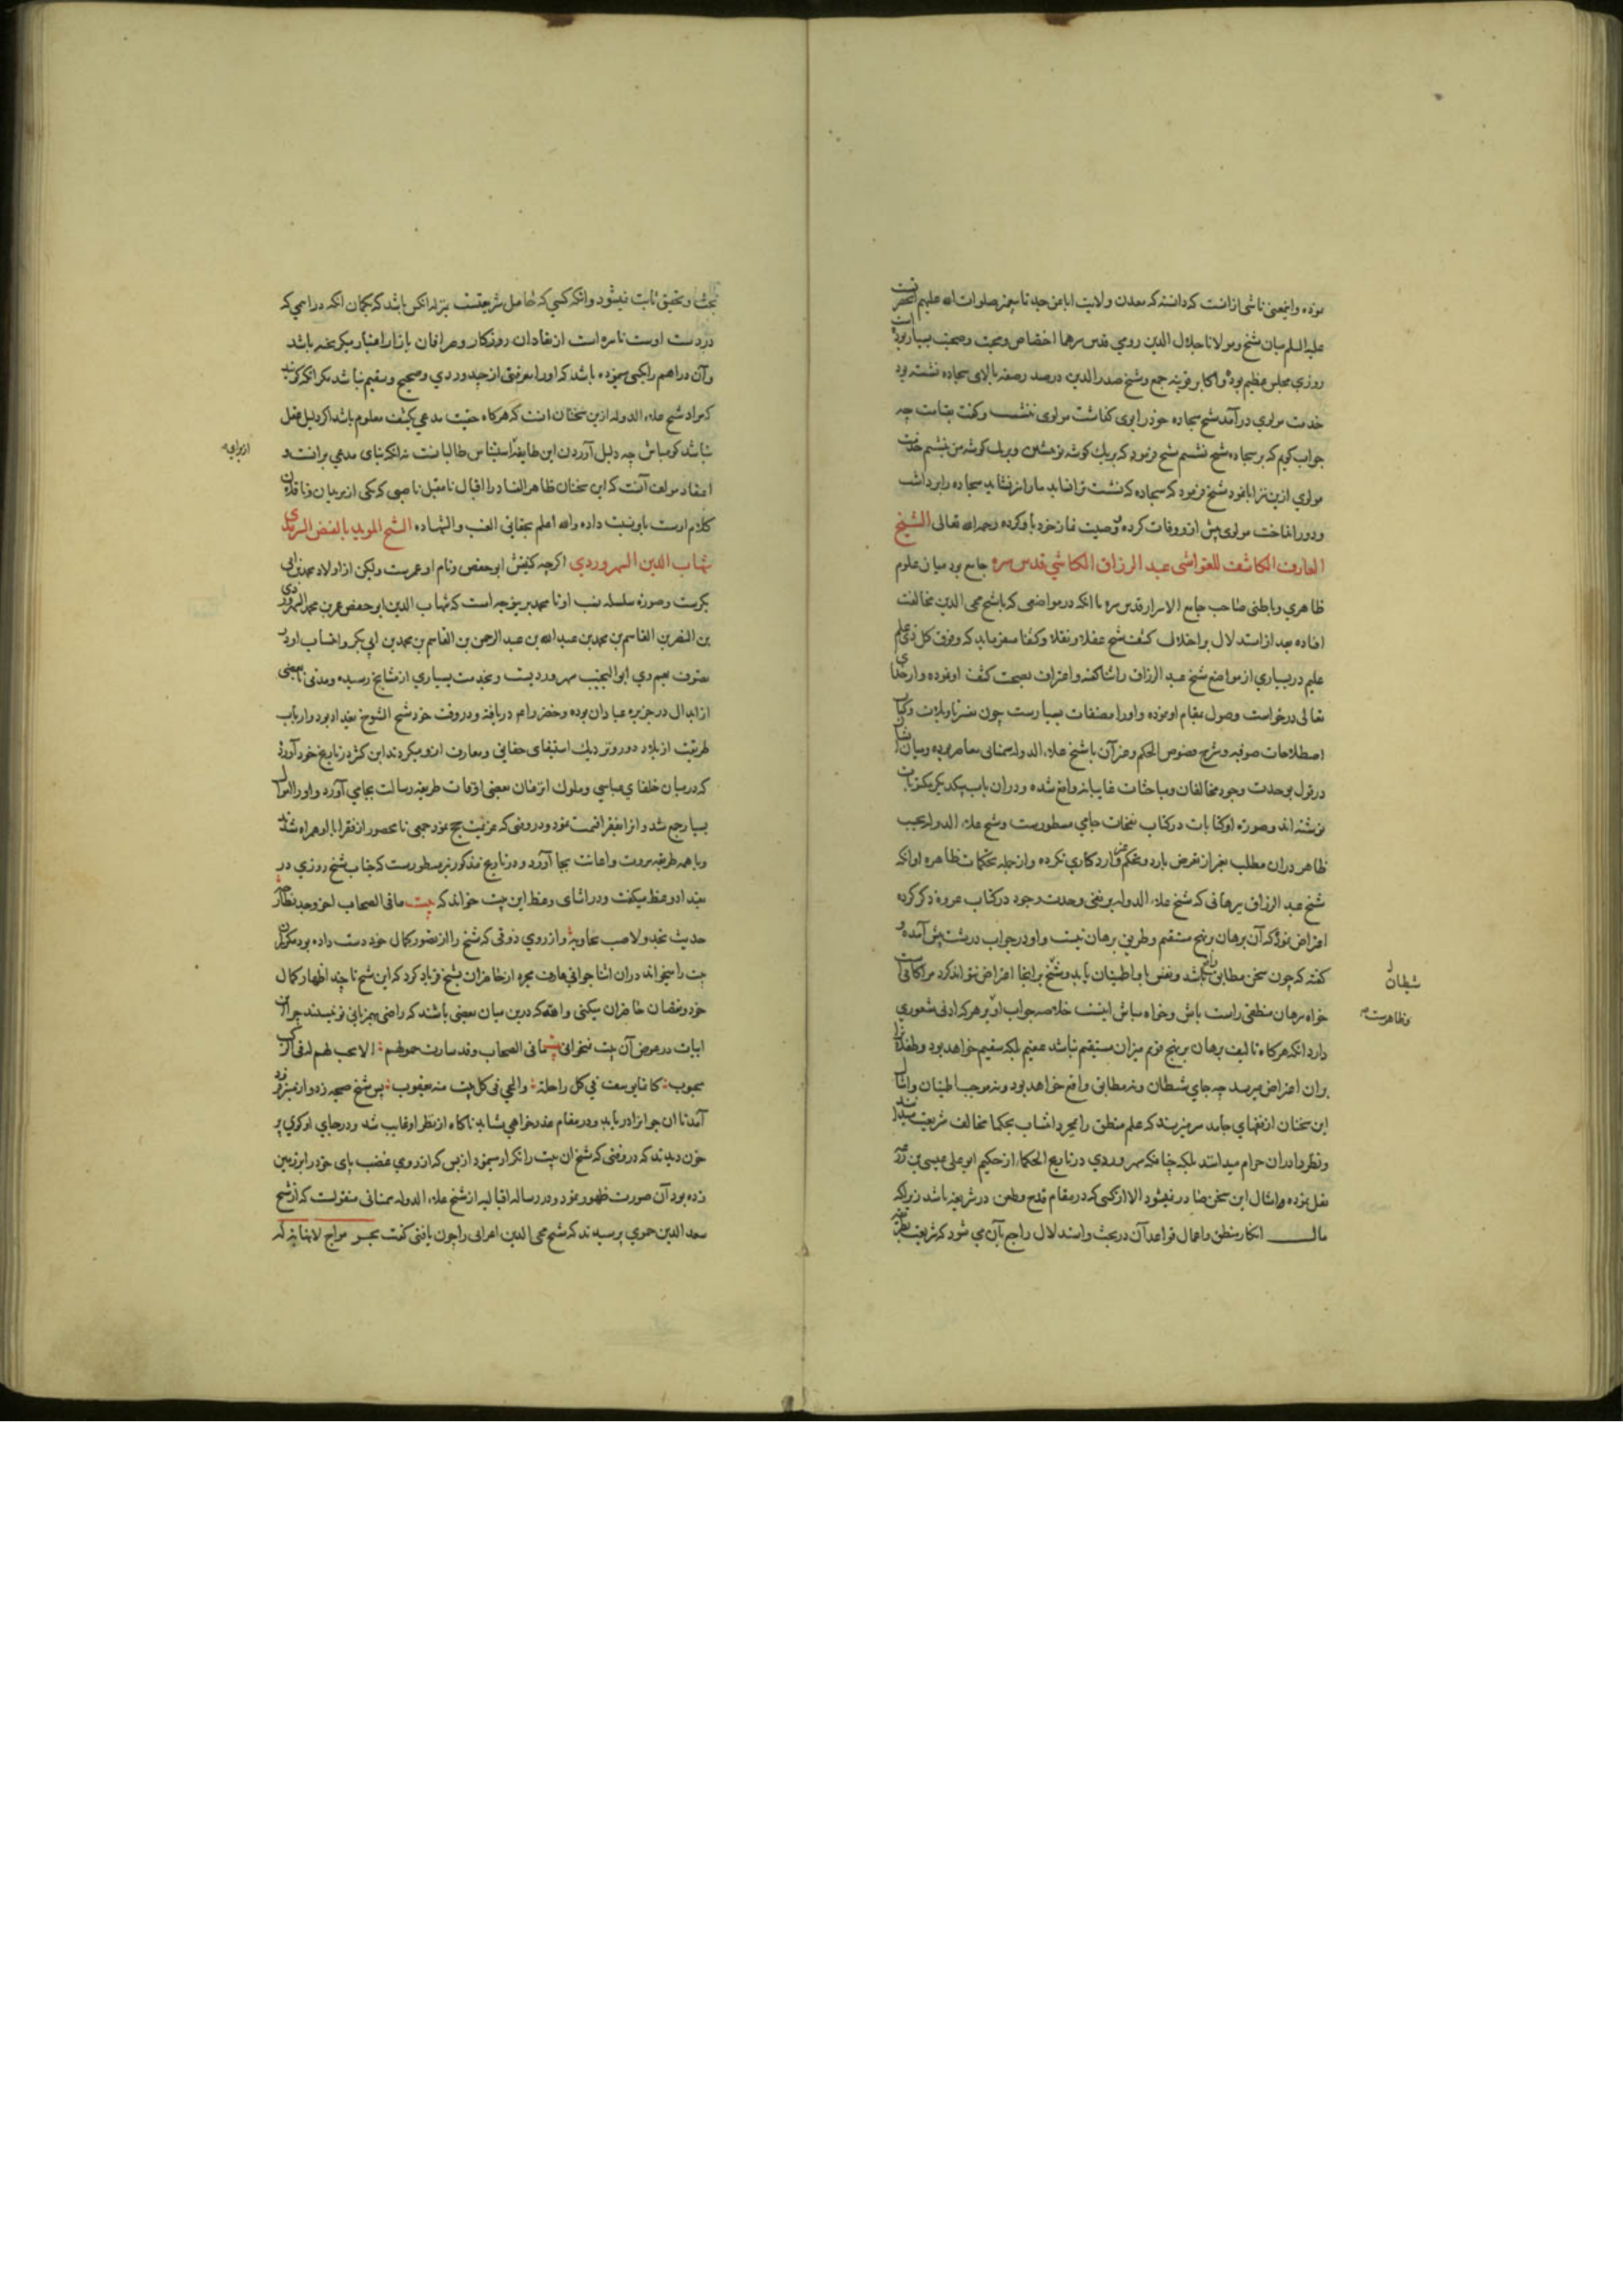 نموده و اینمعنی ناشی از انست که دانسته که معدن ولایت ابا عن جد تا پیغمبر صلوات الله علیهم آنحضرتست
علیه السلم میان شیخ و مولانا جلال الدین رومی قدس سرهما اختصاص و محبت و صحبت بسیار بوده است
روزی مجلس عظیم بود و اکابر قونیه جمع و شیخ صدر الدین در صدر صفه بالای سجاده نشسته بود
خدمت مولوی درآمد شیخ سجاده خود را بوی گذاشت مولوی ننشست و گفت بقیامت چه
جواب گویم که بر سجاده شیخ نشستم شیخ فرمود که بریک گوشه تو بنشین و بریک گوشه من بنشینم خدمت
مولوی ازین تراابا نمود شیخ فرمود که سجاده که نشست ترا نشاید ما را نیز نشاید سجاده را برداشت
و دور انداخت مولوی پیش از و وفات کرده وصیت نماز خود باو کرده رحمه الله تعالی الشیخ
العارف الکاشف للغواشی عبد الرزاق الکاشی قدس سره جامع بود میان علوم
ظاهری و باطنی صاحب جامع الاسرار قدس سره با انکه در مواضعی که با شیخ محی الدین مخالفت
افاده بعد از استدلال بر اختلاف کشف شیخ عقلا و نقلا و کشفا میفرماید که و فوق کل ذی علم
علیم در بسیاری از مواضع شیخ عبد الرزاق را ثنا گفته و اعتراف بصحت کشف او نموده و از خدای
تعالی درخواست وصول بمقام او نموده و او را مصنفات بسیارست چون تفسیر تاویلات و کتاب
اصطلاحات صوفیه و شرح فصوص الحکم و غیر آن با شیخ علاء الدوله سمنانی معاصر بوده و میان ایشان
در قول بوحدت وجود مخالفات و مباحثات غایبانه واقع شده و دران باب بیکدیگر مکتوبات
نوشته اند و صورة او کتابات در کتاب نفحات جامی مسطورست و شیخ علاء الدوله بحسب
ظاهر دران مطلب بغیر از تعرض بارد و تحکم غیر وارد کاری نکرده و از جمله تحکمات ظاهره او انکه
شیخ عبد الرزاق برهانی که شیخ علاء الدوله بر نفی وحدت وجود در کتاب عروه ذکر کرده
اعتراض نموده که آن برهان بر نهج مستقیم و طریق برهان نیست و او در جواب درشت پیش آمده و
گفته که چون سخن مطابق واقع باشد و نفس باو اطمینان یابد و شیخ بر اینجا اعتراض نتواند کرد مرا کافی است
خواه برهان منطقی راست باش و خواه مباش اینست خلاصه جواب او و بر هر که ادنی شعوری
دارد انکه هرگاه تالیف برهان بر نهج قویم میزان مستقیم نباشد عقیم بلکه سقیم خواهد بود و طعنه را
بران اعتراض میرسد چه جای شیطان و نه مطابق واقع خواهد بود و نه موجب اطمینان و امثال
این سخنان از فقهای جامد سر میزند که علم منطق را بمجرد انتساب بحکما مخالف شریعت میدانند
و نظر دادران حرام میدانند بلکه چنانکه سهروردی در تاریخ الحکما از حکیم ابو علی عیسی بن زرعه
نقل نموده و امثال این سخن صادر نمیشود الا از کسی که در مقام قدح و طعن در شریعت باشد زیرا که
مآل انکار منطق و اعمال قواعد آن در بحث و استدلال راجع بآن می شود که شریعت بطریق
شیطان
و ظاهرست
بحث و تحقیق ثابت نمیشود و انکه کسی که حامل شریعتست بمنزله انکس باشد که بگمان انکه دراهمی که
در دست اوست ناسره است از نقادان روزگار و صرافان بازار اعتبار میگریخته باشد
و آن دراهم را بکسی نمیموده باشد که او را معرفتی از جید و ردی و صحیح و سقیم نباشد مگر انکه گویند
که مراد شیخ علاء الدوله ازین سخنان انست که هرگاه حقیت مدعی بکشف معلوم باشد اگر دلیل عقل
نباشد گو مباش چه دلیل آوردن این طایفه استیناس طالبانست نه انکه بنای مدعی برانست و
اعتقاد مولف آنست که این سخنان ظاهر الفساد را اقبال نامقبل ناصبی که یکی از مریدان و ناقلان
کلام اوست باو نسبت داده والله اعلم بحقایق الغیب والشهاده الشیخ الموید بالفیض السرمدی
شهاب الدین السهروردی اگرچه کنیتش ابو حفص و نام او عمرست ولیکن از اولاد محمد بن ابی
بکرست و صورة سلسله نسب او تا محمد برینوجه است که شهاب الدین ابو حفص عمر بن محمد السهروردی
بن النضر بن القاسم بن محمد بن عبد الله بن عبد الرحمن بن القاسم بن محمد بن ابی بکر و انتساب او در
تصوف بعم وی ابو النجیب سهروردیست و بخدمت بسیاری از مشایخ رسیده و مدتی با بعضی
از ابدال در جزیره عبادان بوده و خضر را هم دریافته و در وقت خود شیخ الشیوخ بغداد بود و ارباب
طریقت از بلاد دور و نزدیک استیفای حقایق و معارف ازو میکردند ابن کثیر در تاریخ خود آورده
که در میان خلفای عباسی و ملوک انزمان بعضی اوقات طریقه رسالت بجای آورد و او را اموال
بسیار جمع شد و انرا بفقرا قسمت نمود و در وقتی که عزیمت حج نمود جمعی نامحصور از فقرا با او همراه شدند
و با همه طریقه مروت و اعانت بجا آورد و در تاریخ مذکور نیز مسطورست که جناب شیخ روزی در
بغداد وعظ میگفت و در اثنای وعظ این بیت خواند که بیت ما فی الصحاب اخو وجد نطارحه
حدیث نجد ولا صب نجاریه و از روی ذوقی که شیخ را از تصور کمال خود دست داده بود مکرر آن
بیت را میخواند دران اثنا جوانی از حاضران بشیخ فریاد کرد که این شیخ تا چند اظهار کمال
خود و نقصان حاضران میکنی والله که درین میان بعضی باشند که راضی بهمزبانی تو نیستند چرا این
ابیات در عوض آن بیت نمیخوانی ما فی الصحاب وقد سارت حمولهم الا محب لهم فی الرکب
محبوب کانما یوسف فی کل راحلة والحی فی کل بیت منه یعقوب پس شیخ صیحه زد و از منبر فرود
آمد تا ان جوانرا دریابد و در مقام عذرخواهی بشاید ناگاه از نظر او غایب شد و در جای او گوی پر
خون دیدند که در وقتی که شیخ ان بیت را تکرار مینمود از بس که از روی غضب پای خود را بر زمین
زده بود آن صورت ظهور نمود و در رساله اقبالیه از شیخ علاء الدوله سمنانی منقولست که از شیخ
سعد الدین حموی پرسیدند که شیخ محی الدین اعرابی را چون یافتی گفت بحر مواج لا نهایة له